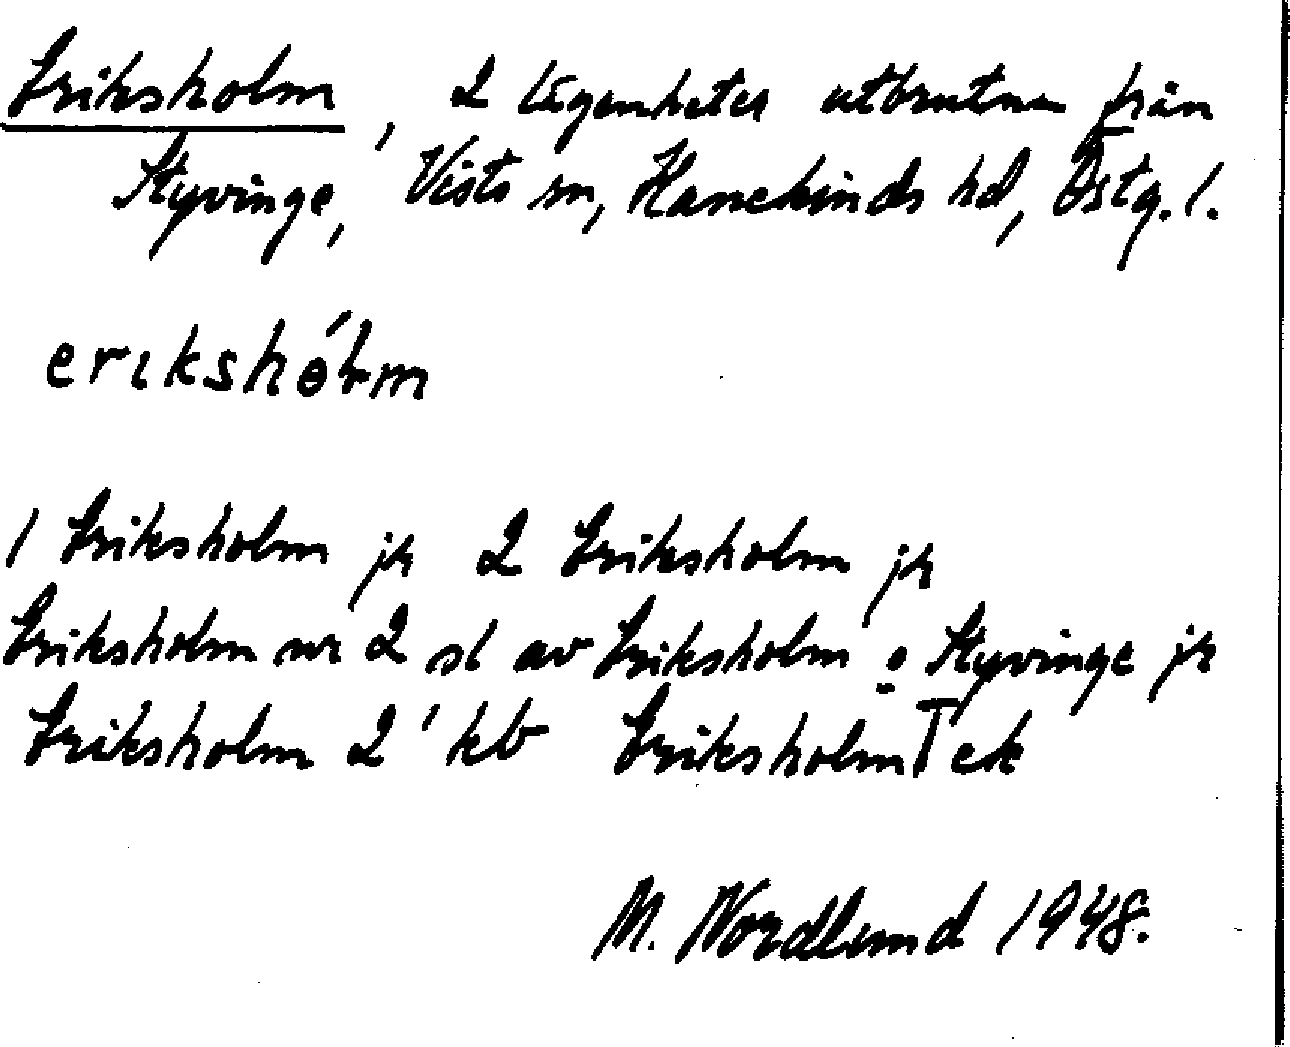 Eriksholm, 2 lägenheter utbrutna från
Styvinge, Vists sn, Hanekinds hd, Östg. l.
erikshólm
1 Eriksholm jr 2 Eriksholm jr
Eriksholm nr 2 sl av Eriksholm o Styvinge jr
Eriksholm 2' kb Eriksholm T ek
M. Nordlund 1948.